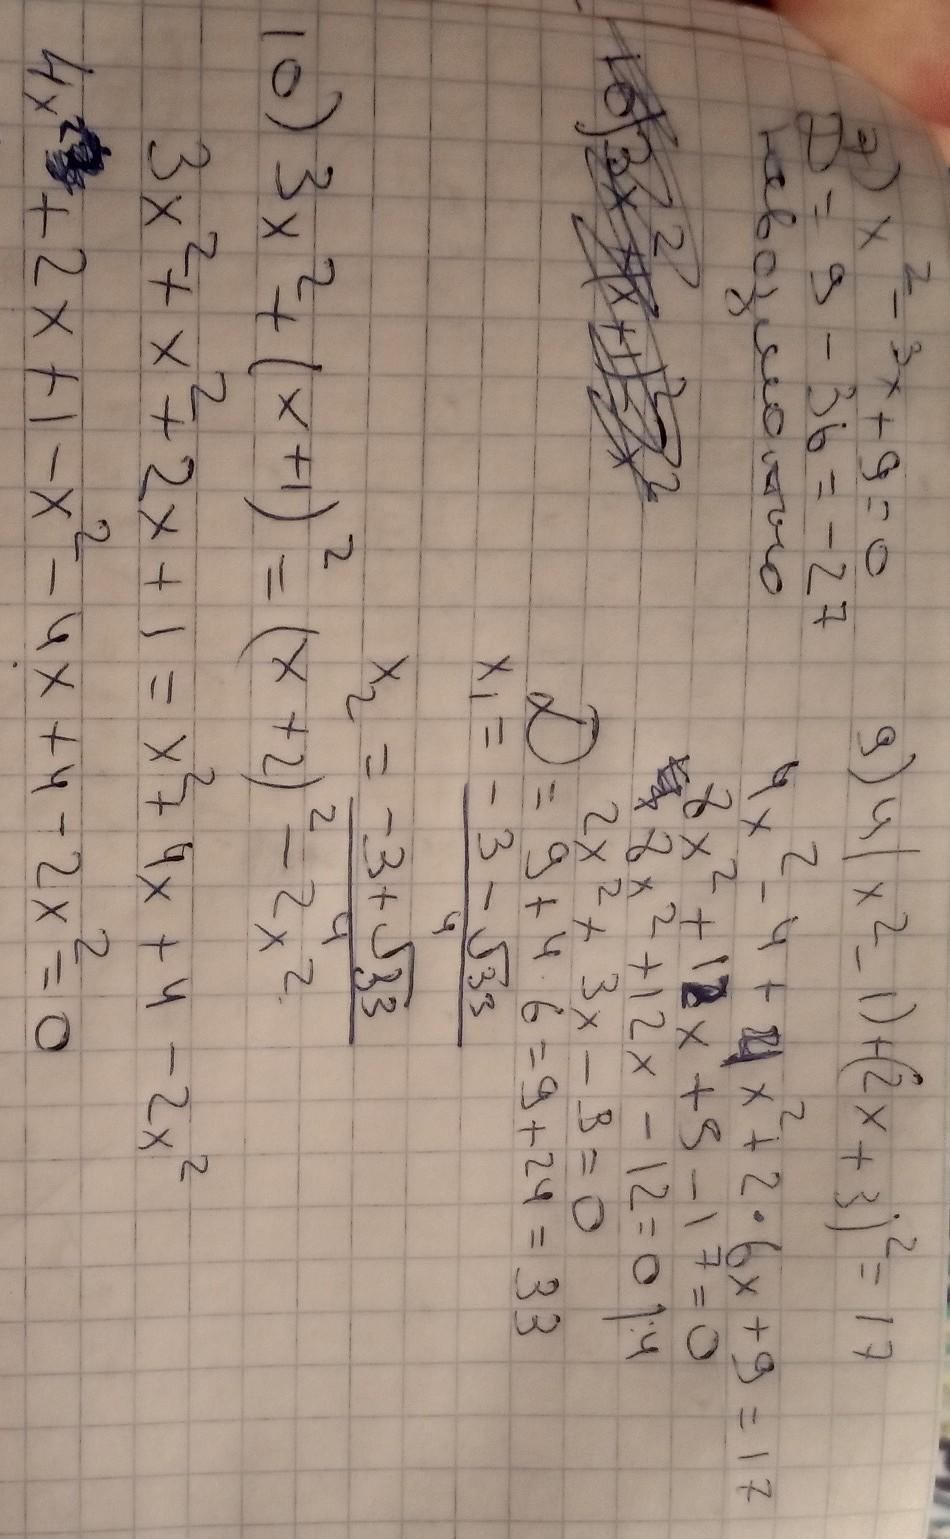 7) x² - 3x + 9 = 0
D = 9 - 36 = -27
невозможно
9) 4(x² - 1) + (2x + 3)² = 17
4x² - 4 + 4x² + 2 · 6x + 9 = 17
8x² + 12x + 5 - 17 = 0
8x² + 12x - 12 = 0 |:4
2x² + 3x - 3 = 0
D = 9 + 4 · 6 = 9 + 24 = 33
x₁ = -3 - √33 / 4
x₂ = -3 + √33 / 4
10) 3x² + (x + 1)² = (x + 2)² - 2x²
3x² + x² + 2x + 1 = x² + 4x + 4 - 2x²
4x² + 2x + 1 - x² - 4x + 4 - 2x² = 0